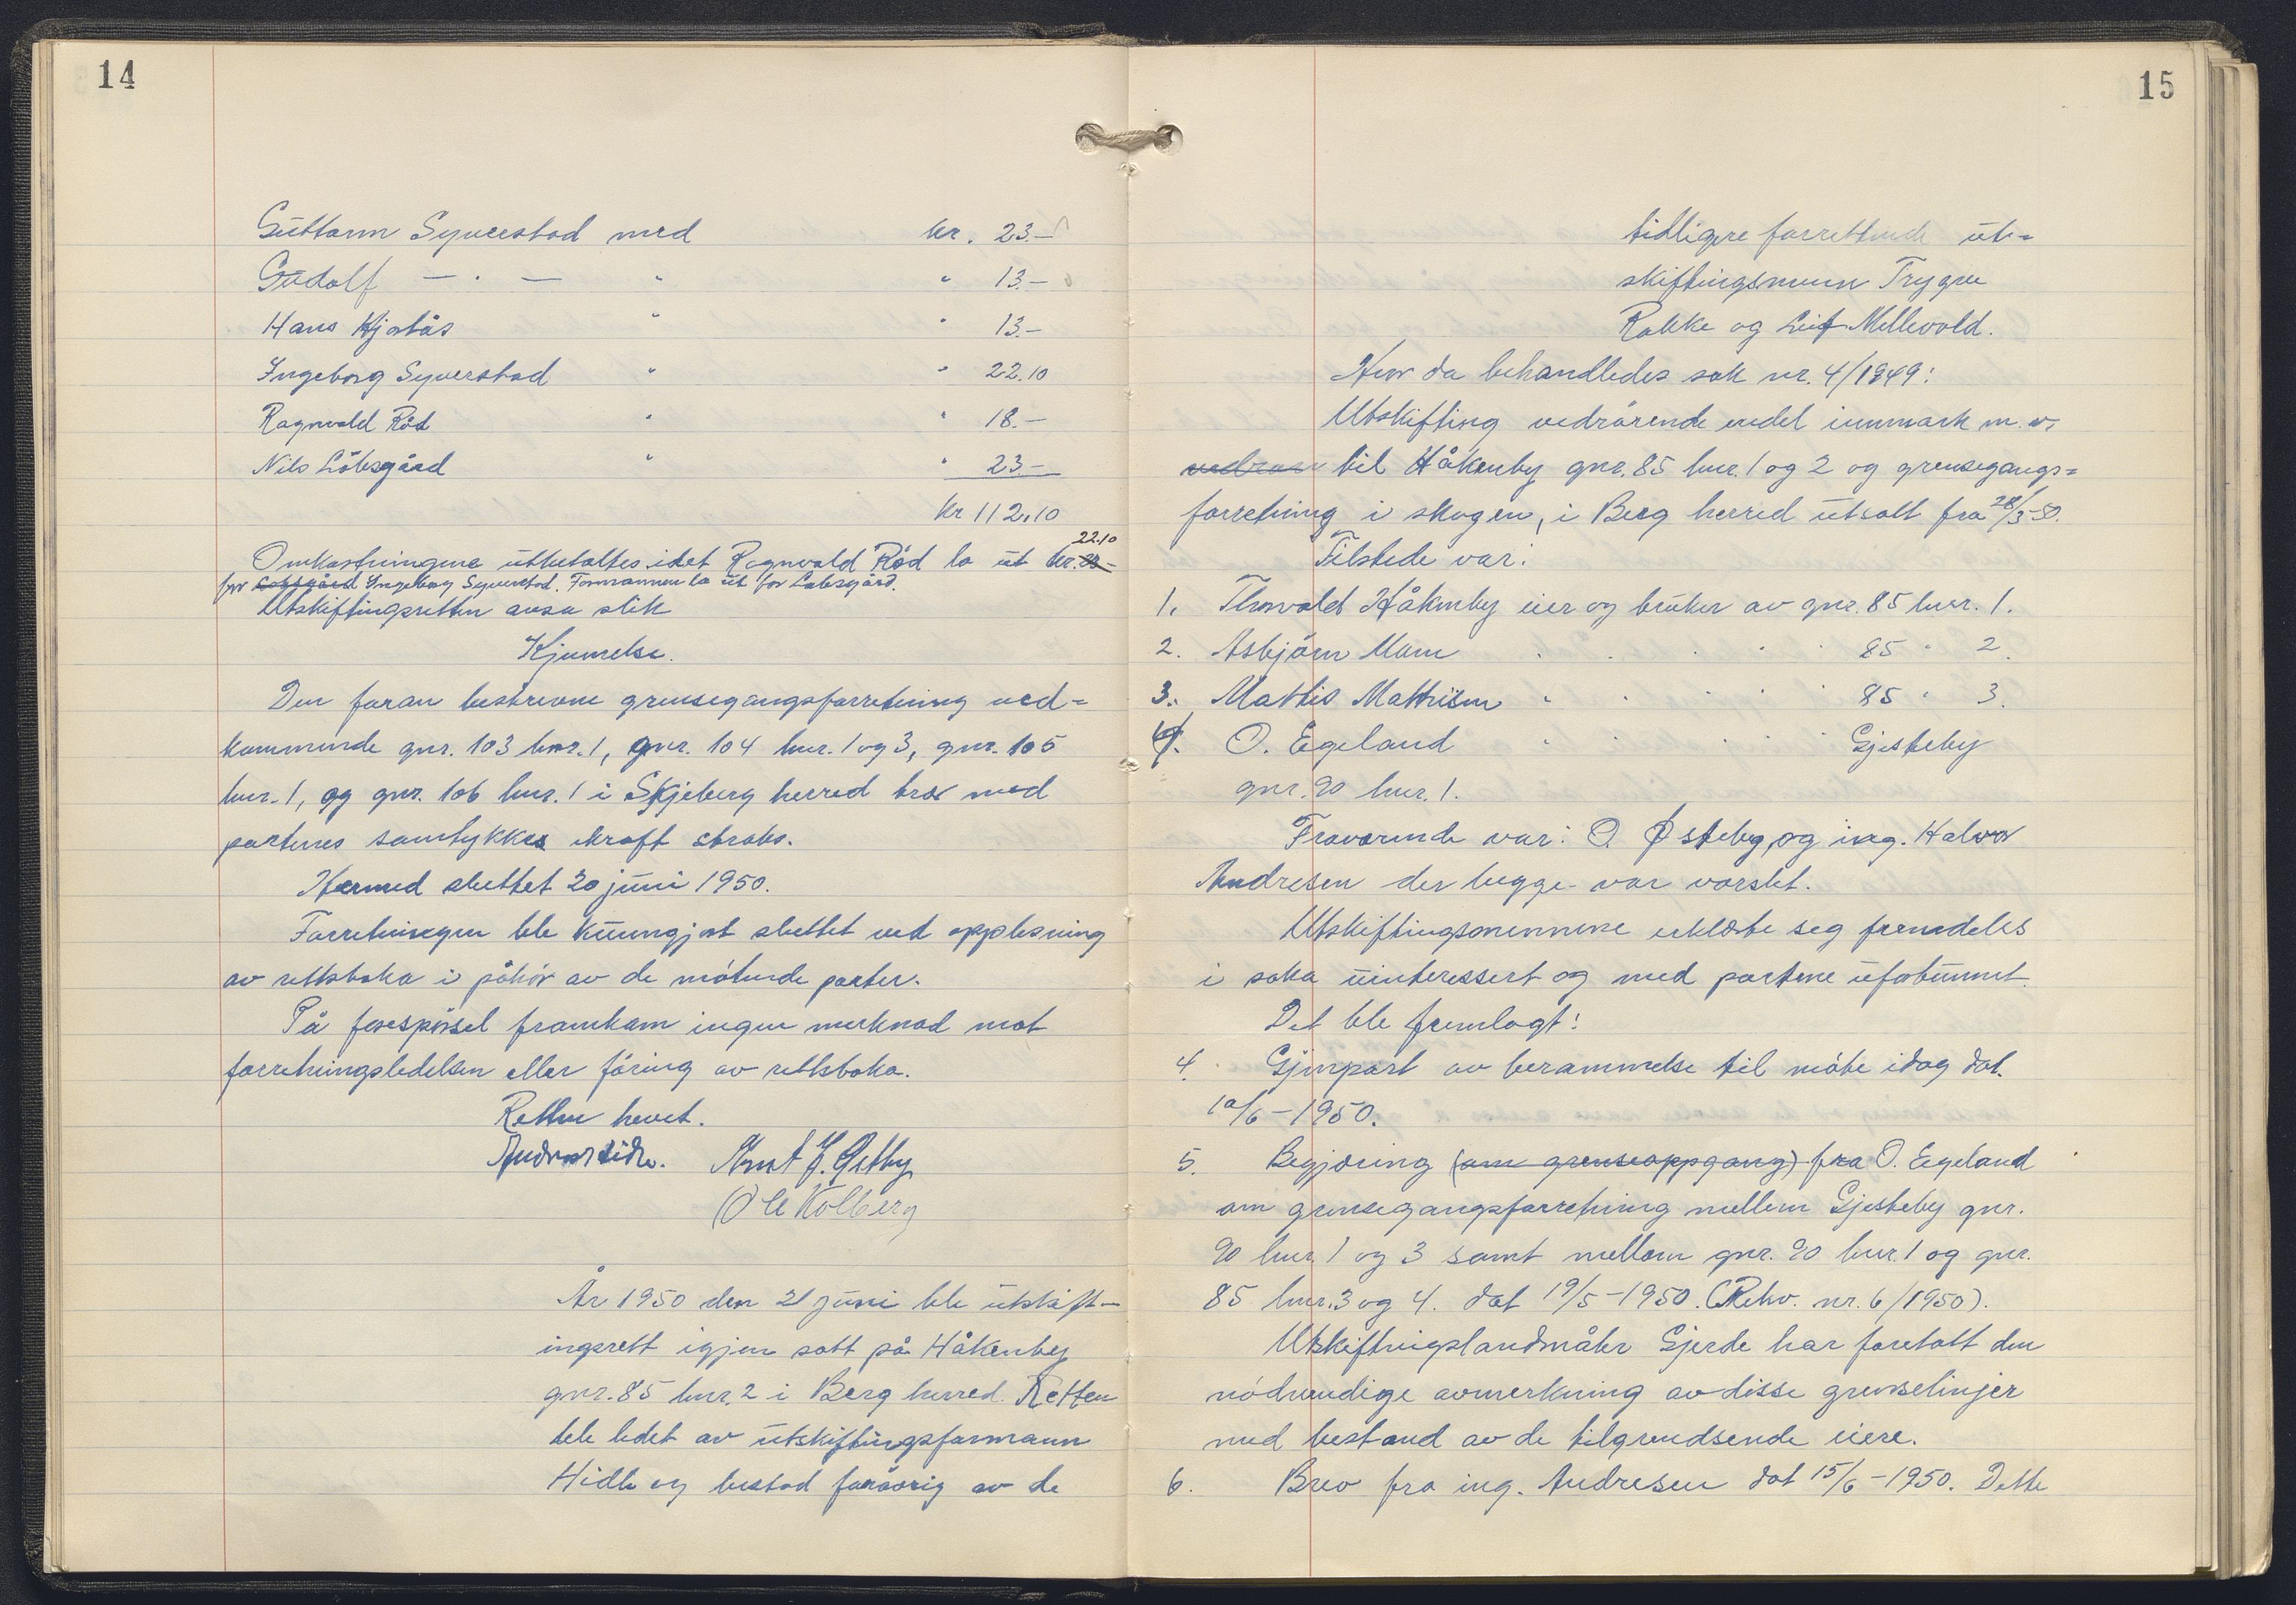 14
Guttorm Syverstad med kr. 23.-
Gudolf — . — " " 13.-
Hans Kjærås " " 13.-
Ingeborg Syverstad " " 22.10
Ragnvald Röd " " 18.-
Nils Löbesgård " " 23.-
Kr 112.10
22.10
Omkostningene utbetaltes idet Ragnvald Röd la ut kr. 23.-
for Lobesgård Ingeborg Syverstad. Formannen la ut for Labesgård.
Utskiftingsretten avsa slik
Kjennelse.
Den foran beskrevne grensegangsforretning ved-
kommende gnr. 103 bnr. 1, gnr. 104 bnr. 1 og 3, gnr. 105
bnr. 1, og gnr. 106 bnr. 1 i Skjeberg herred trer med
partenes samtykke i kraft straks.
Hermed sluttet 20 juni 1950.
Forretningen ble kunngjort sluttet ved opplesning
av rettsboka i påhör av de mötende parter.
På forespörsel framkom ingen merknad mot
forretningsledelsen eller föring av rettsboka.
Retten hevet.
Andreas Hidle. Knut J. Getby
Ole Kolberg
År 1950 den 21 juni ble utskift-
ingsrett igjen satt på Håkenby
gnr. 85 bnr. 2 i Berg herred. Retten
ble ledet av utskiftingsformann
Hidle og bestod forövrig av de
15
tidligere forrettende ut=
skiftingsmenn Trygve
Rakke og Leif Mellevold.
Hvor da behandledes sak nr. 4/1949:
Utskifting vedrörende endel innmark m.v.
vedrör til Håkenby gnr. 85 bnr. 1 og 2 og grensegangs=
forretning i skogen, i Berg herred utsatt fra 28/3-50.
Tilstede var:
1. Thorvald Håkenby eier og bruker av gnr. 85 bnr. 1.
2. Asbjörn Moum " " " " " 85 " 2.
3. Mathis Mathisen " " " " " 85 " 3.
4. O. Egeland " " " " " Gjesteby
gnr. 90 bnr. 1.
Fraværende var: O. Østeby og ing. Halvor
Andresen der begge var varslet.
Utskiftingsmennene erklærte seg fremdeles
i saka uinteressert og med partene uforbunnet.
Det ble fremlagt:
4. Gjenpart av berammelse til möte idag dat.
10/6-1950.
5. Begjæring (om grenseoppgang) fra O. Egeland
om grensegangsforretning mellem Gjesteby gnr.
90 bnr. 1 og 3 samt mellom gnr. 90 bnr. 1 og gnr.
85 bnr. 3 og 4. dat 19/5-1950. (Rekv. nr. 6/1950).
Utskiftingslandmåler Gjerde har foretatt den
nödvendige avmerkning av disse grenselinjer
med bistand av de tilgrendsende eiere.
6. Brev fra ing. Andresen dat 15/6-1950. Dette